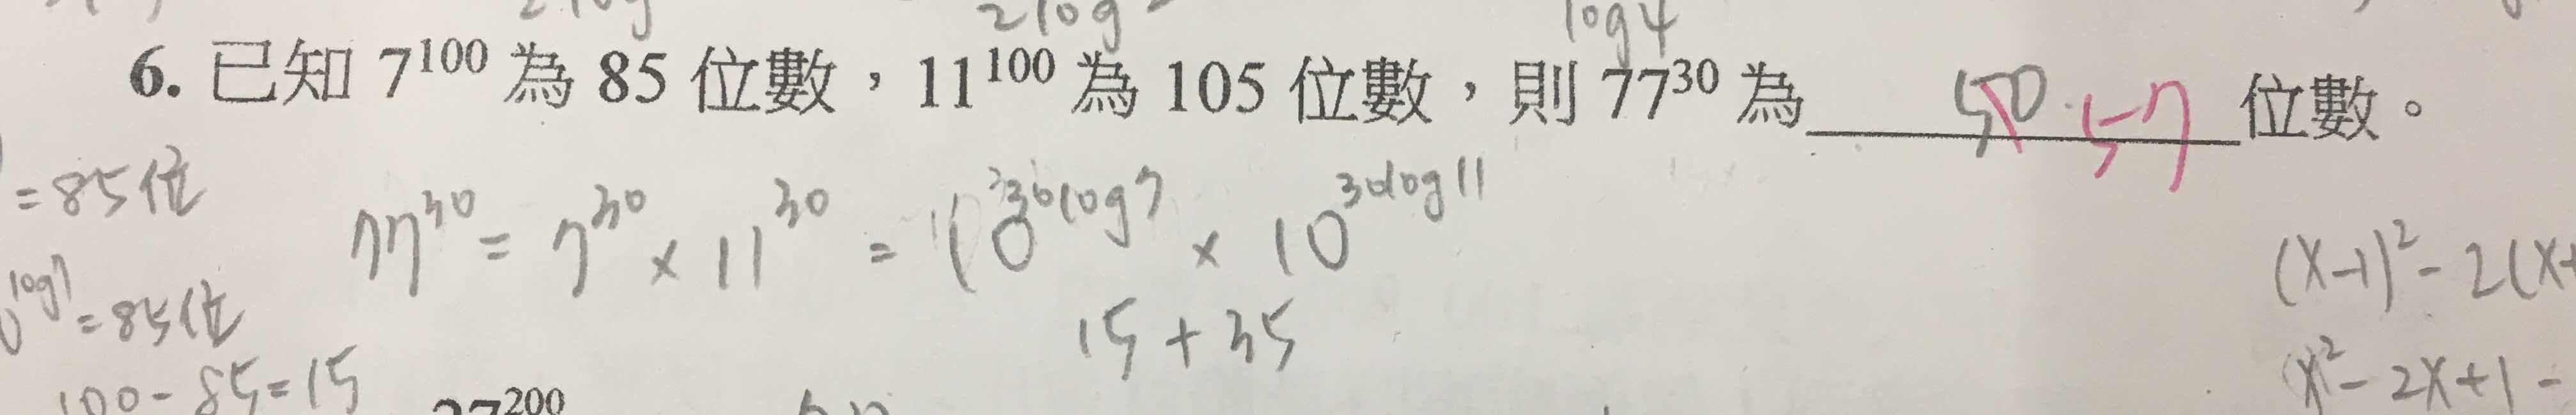 2log
log4
6. 已知 7¹⁰⁰ 為 85 位數，11¹⁰⁰ 為 105 位數，則 77³⁰ 為 50 57 位數。
=85位
77³⁰ = 7³⁰ × 11³⁰ = 10³⁰ˡᵒᵍ⁷ × 10³⁰ˡᵒᵍ¹¹
(x-1)² - 2(x+
log7 = 85位
15 + 35
100 - 85 = 15
x² - 2x + 1 -
27²⁰⁰